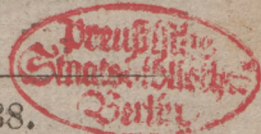 Preußische
Staatsbibliothek
Berlin
38.